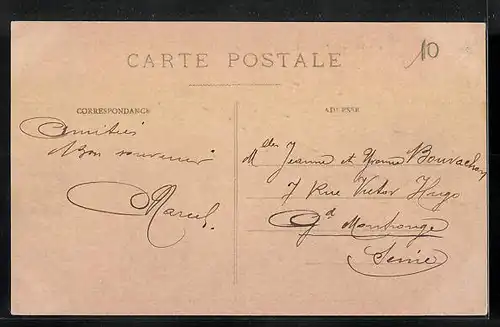 10
CARTE POSTALE
CORRESPONDANCE
Amitiés
Mon souvenir
Marcel.
ADRESSE
Mlles Jeanne et Yvonne
7 Rue Victor Hugo
Gd Montrouge
Seine